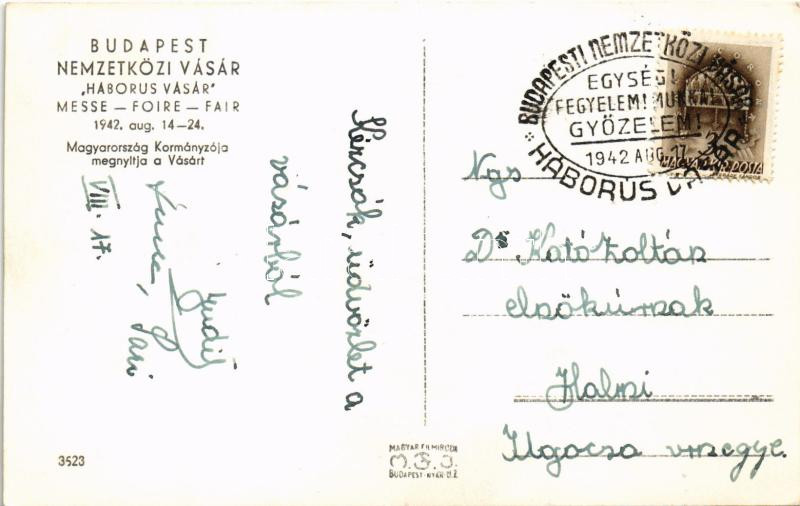 BUDAPEST
NEMZETKÖZI VÁSÁR
„HÁBORUS VÁSÁR"
MESSE — FOIRE — FAIR
1942. aug. 14—24.
Magyarország Kormányzója
megnyitja a Vásárt
üdvözlet a
vásárból
Judit
Sári
VIII. 17.
3523
MAGYAR FILMIRODA
M.F.I.
BUDAPEST
BUDAPESTI NEMZETKÖZI VÁSÁR
EGYSÉG!
FEGYELEM! MUNKA!
GYŐZELEM!
1942 AUG. 17
HÁBORÚS VÁSÁR
MAGYAR POSTA
Ngs
Dr Kató Zoltán
Halmi
Ugocsa vmegye.